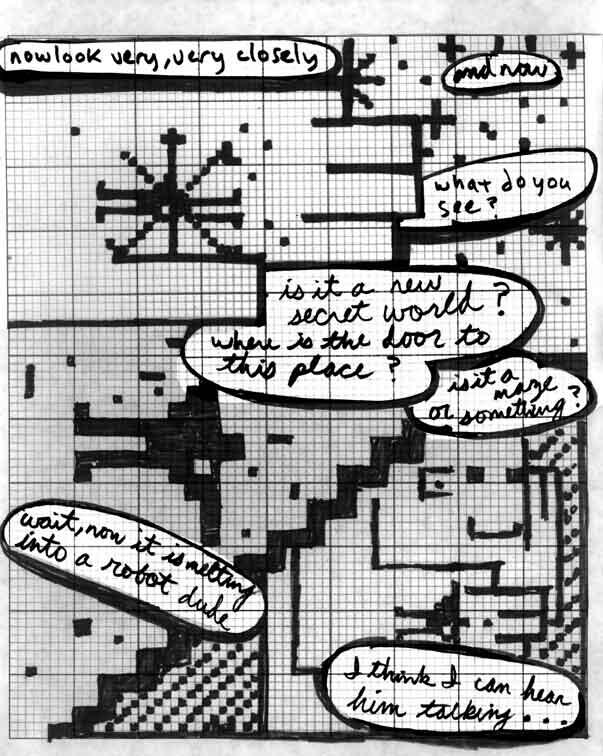 now look very, very closely
and now
what do you
see?
is it a new
secret world?
where is the door to
this place?
is it a
maze
or something?
wait, now it is melting
into a robot dude
I think I can hear
him talking...